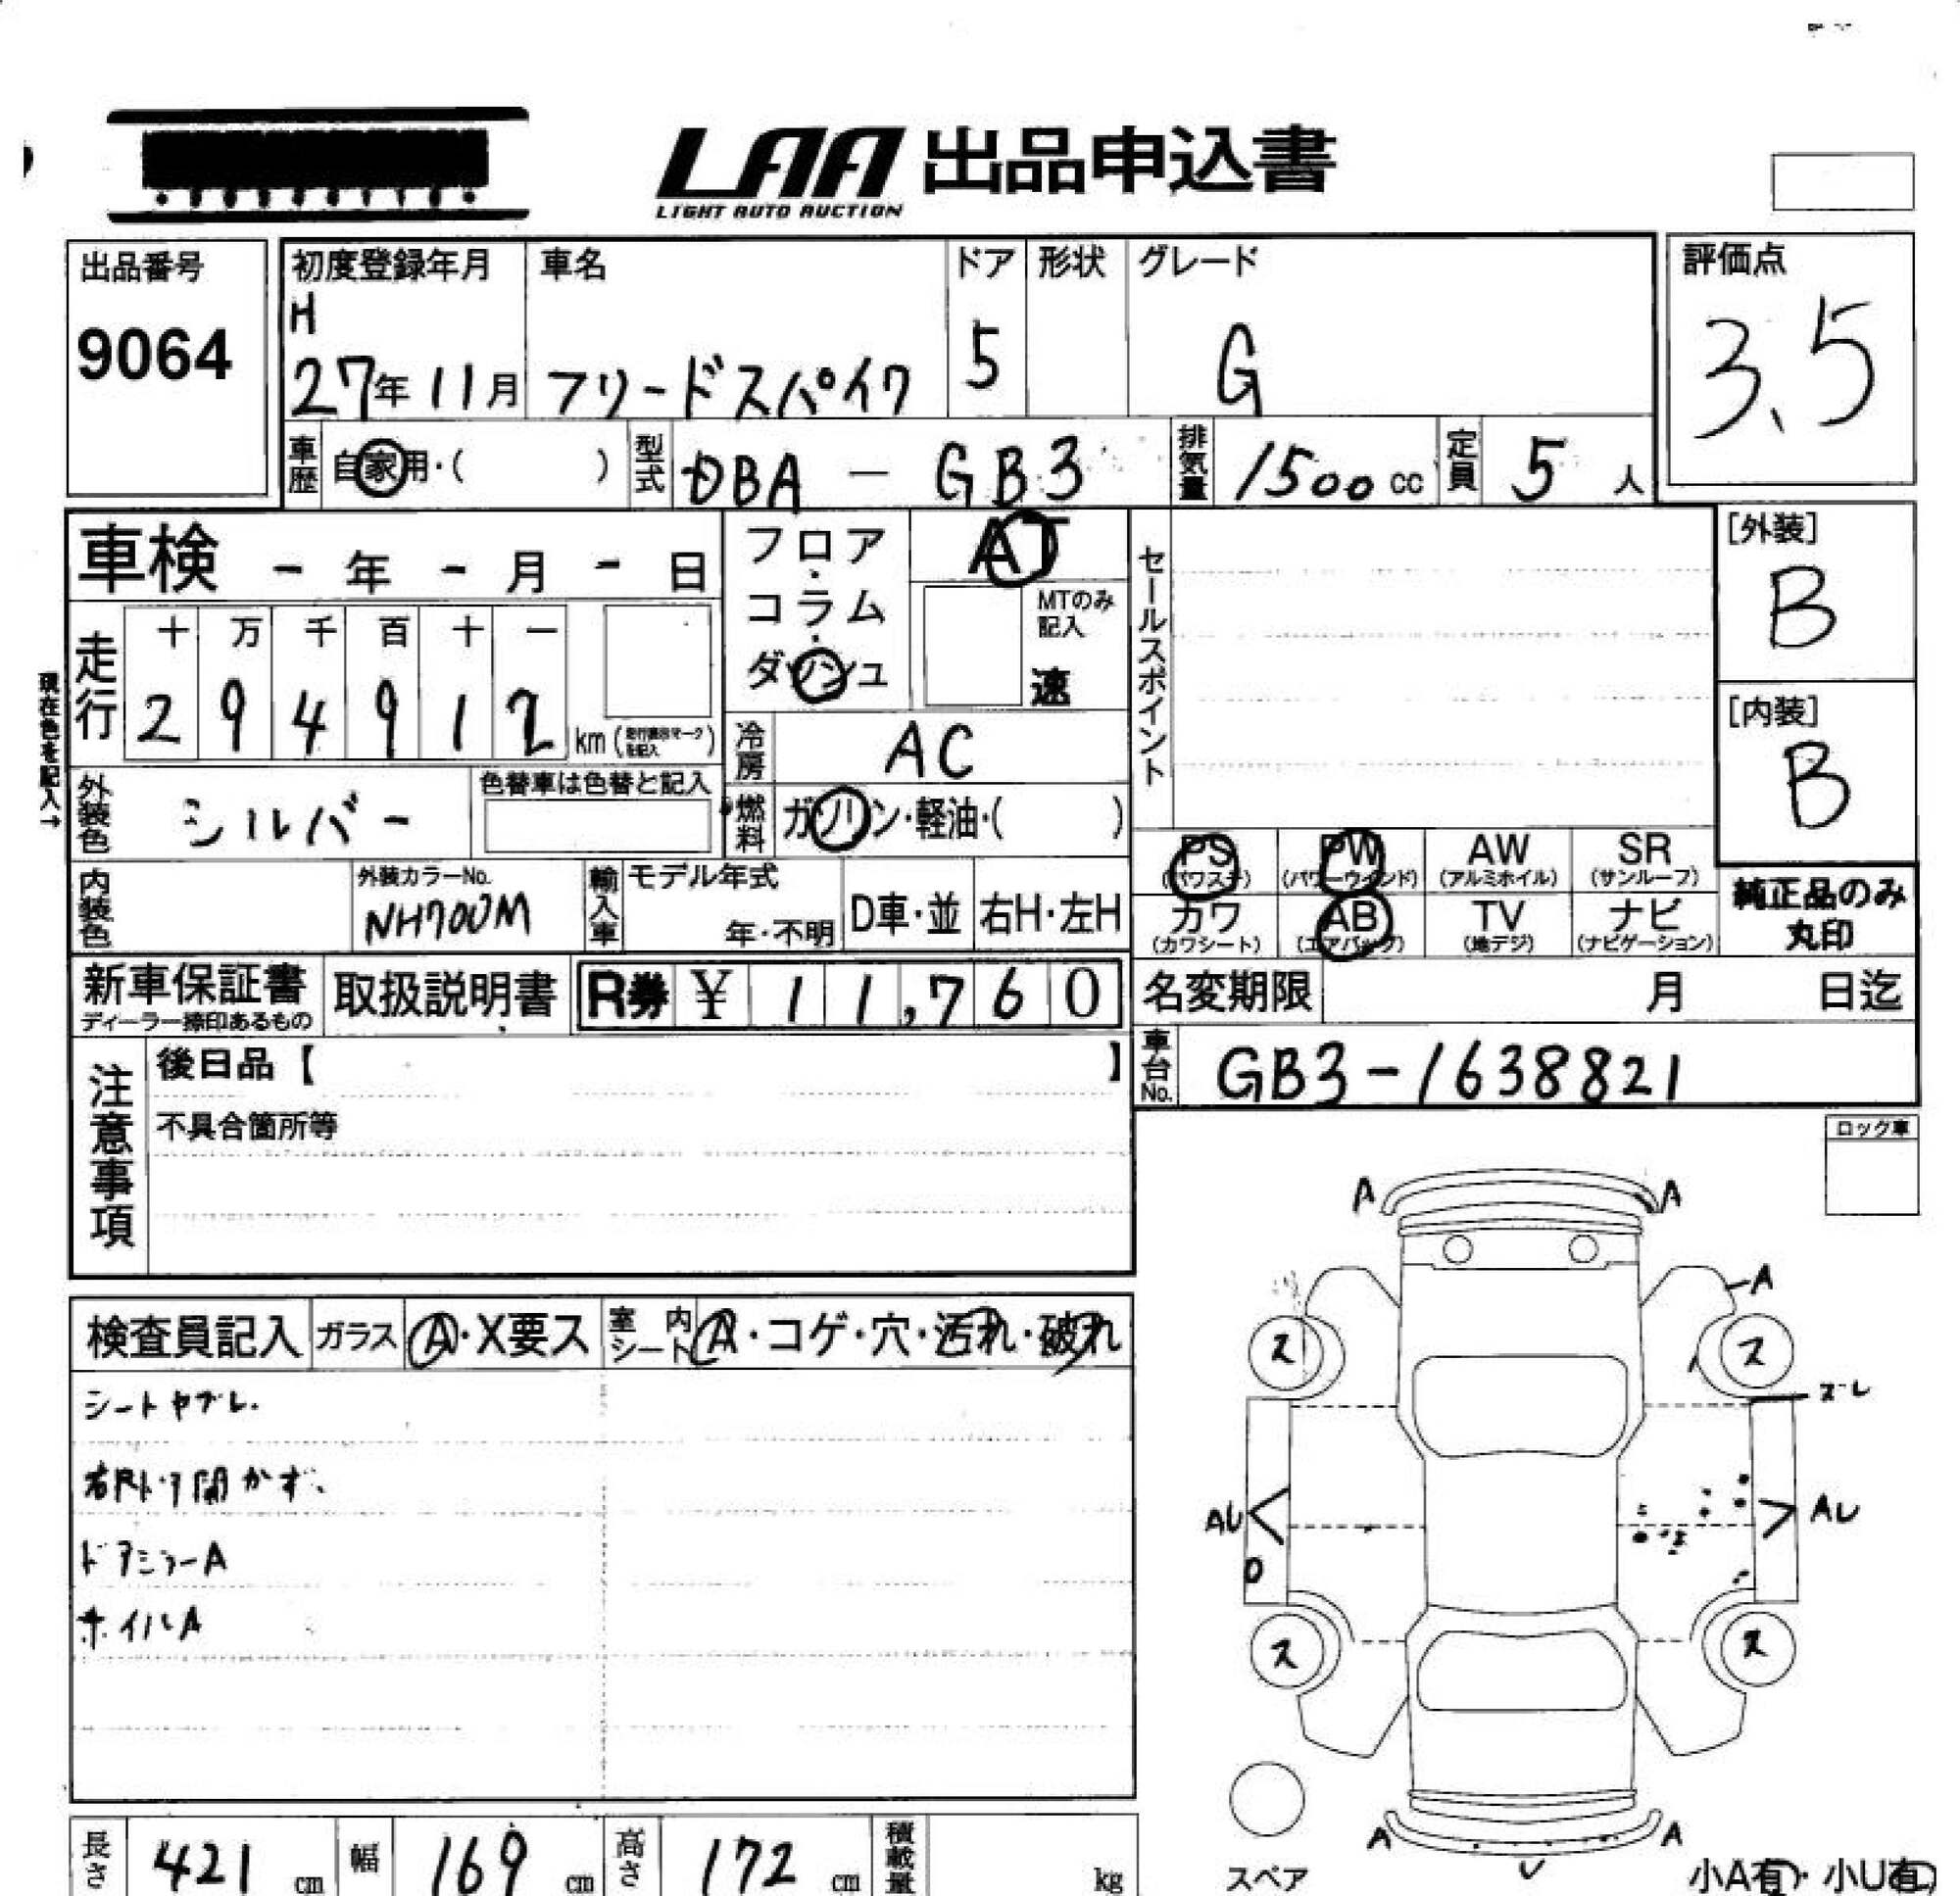 LAA 出品申込書
LIGHT AUTO AUCTION
出品番号
9064
初度登録年月
H
27年11月
車名
フリードスパイク
ドア
5
形状
グレード
G
評価点
3.5
車歴
自家用・( )
型式
DBA - GB3
排気量
1500 cc
定員
5 人
車検 - 年 - 月 - 日
フロア・コラム・ダッシュ
AT
MTのみ記入
速
セールスポイント
[外装]
B
[内装]
B
現在色を記入→
走行
十 万 千 百 十 一
2 9 4 9 1 2 km
冷房
AC
外装色
シルバー
色替車は色替と記入
燃料
ガソリン・軽油・( )
PS
(パワステ)
PW
(パワーウインド)
AW
(アルミホイル)
SR
(サンルーフ)
カワ
(カワシート)
AB
(エアバッグ)
TV
(地デジ)
ナビ
(ナビゲーション)
純正品のみ
丸印
内装色
外装カラーNo.
NH700M
輸入車
モデル年式
年・不明
D車・並
右H・左H
新車保証書
ディーラー捺印あるもの
取扱説明書
R券 ¥ 11,760
名変期限 月 日迄
車台No.
GB3-1638821
注意事項
後日品【 】
不具合箇所等
ロック車
検査員記入
ガラス
A・X要ス
室内シート
A・コゲ・穴・汚れ・破れ
シートヤブレ.
右Rドア開かず.
ドアミラーA
ホイルA
A A
A
ス ス
ズレ
AU AU
ス ス
A A
スペア
小A有・小U有
長さ
421 cm
幅
169 cm
高さ
172 cm
積載量
kg